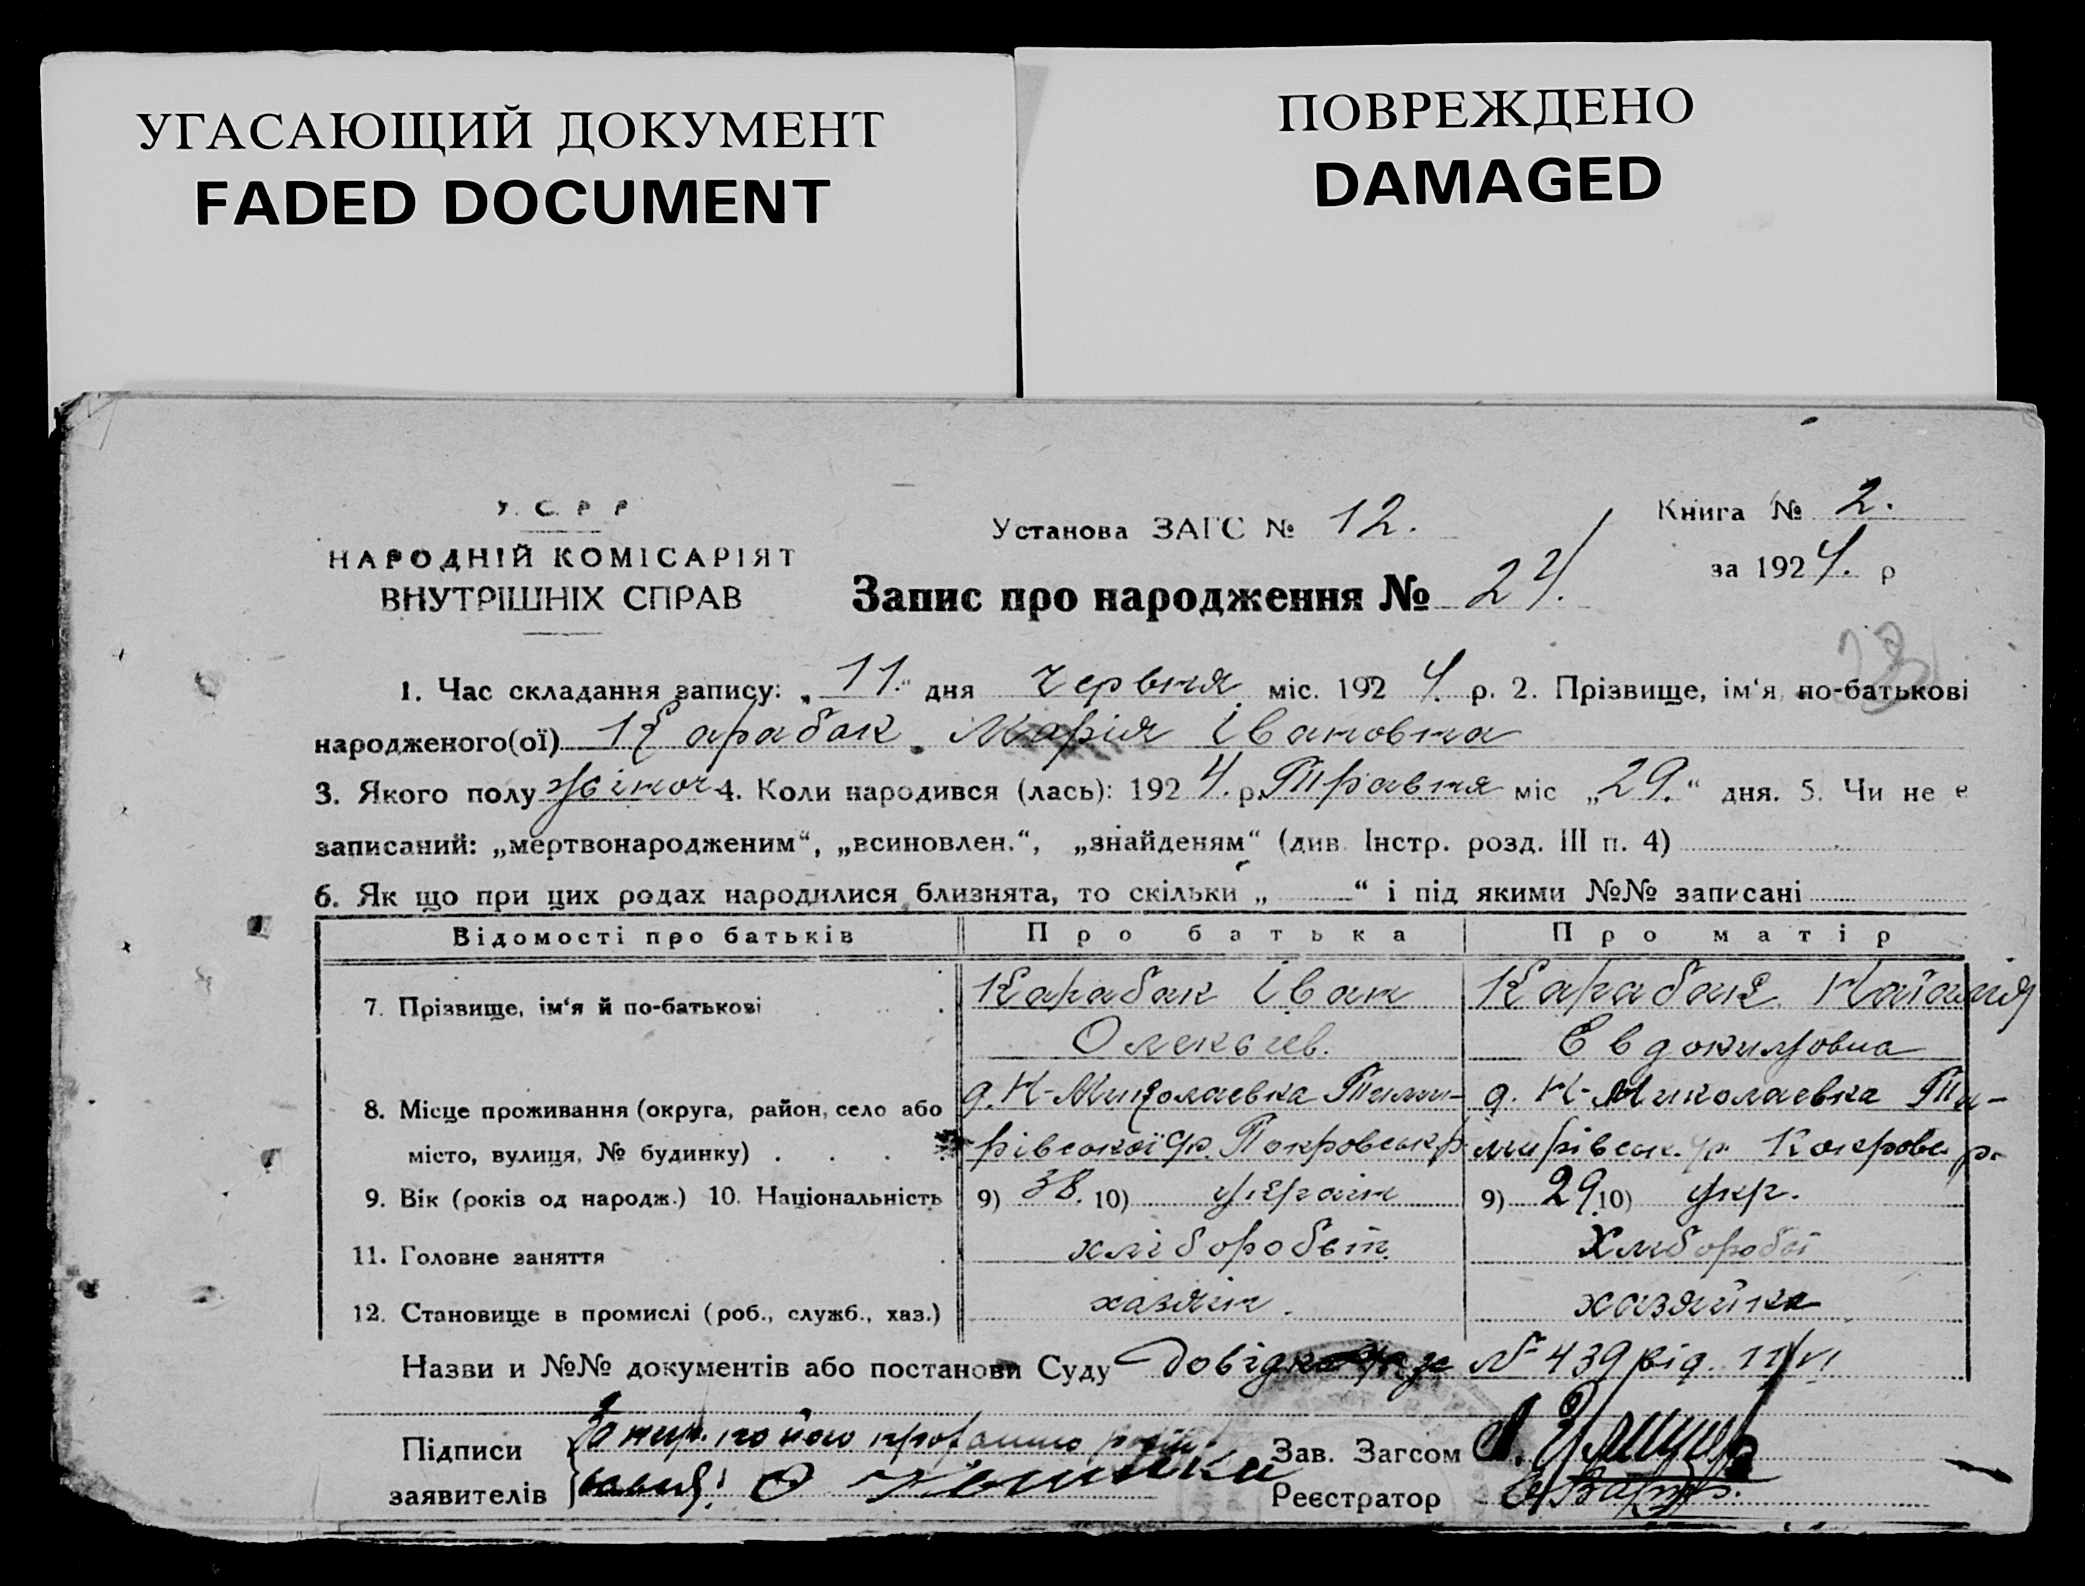 УГАСАЮЩИЙ ДОКУМЕНТ
FADED DOCUMENT
ПОВРЕЖДЕНО
DAMAGED
У. С. Р. Р
НАРОДНІЙ КОМІСАРІЯТ
ВНУТРІШНІХ СПРАВ
Установа ЗАГС № 12.
Книга № 2.
за 1924. р
Запис про народження № 24.
1. Час складання запису: „11.“ дня Червня міс. 1924. р. 2. Прізвище, ім‘я по-батькові
народженого(ої) Карабак Марія Івановна
3. Якого полу жіноч 4. Коли народився (лась): 1924. р. Травня міс „29.“ дня. 5. Чи не е
записаний: „мертвонародженим“, „всиновлен.“, „знайденям“ (див. Інстр. розд. III п. 4)
6. Як що при цих родах народилися близнята, то скільки „ “ і під якими №№ записані
Відомості про батьків Про батька Про матір
7. Прізвище, ім‘я й по-батькові Карабак Іван Карабак Наталія
Олексіев. Евдокимовна
8. Місце проживання (округа, район, село або д. Н-Миколаевка Тими- д. Н-Миколаевка Ти-
місто, вулиця, № будинку) рівської Покровськ р. мирівськ. р.
9. Вік (років од народж.) 10. Національність 9) 38. 10) україн 9) 29 10) укр.
11. Головне заняття хлібороб
12. Становище в промислі (роб., служб., хаз.) хазяін. хазяйка
Назви и №№ документів або постанови Суду Довідка № 439 від. 11/VI
Підписи
заявителів
Зав. Загсом
Реєстратор